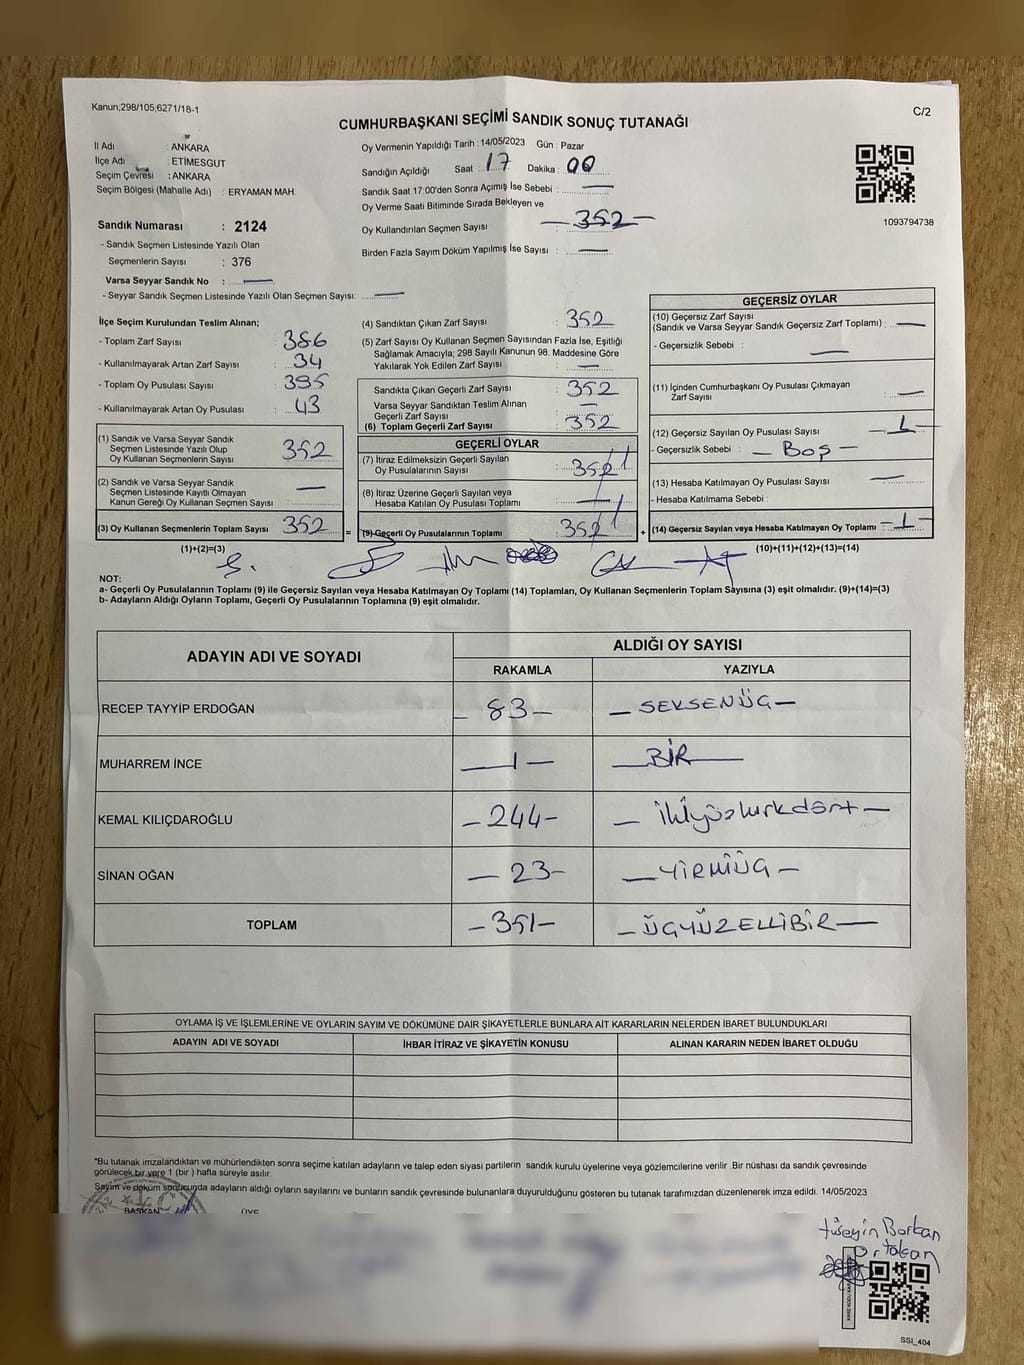 Kanun;298/105,6271/18-1
C/2
CUMHURBAŞKANI SEÇİMİ SANDIK SONUÇ TUTANAĞI
İl Adı : ANKARA
İlçe Adı : ETİMESGUT
Seçim Çevresi : ANKARA
Seçim Bölgesi (Mahalle Adı) : ERYAMAN MAH.
Sandık Numarası : 2124
- Sandık Seçmen Listesinde Yazılı Olan
Seçmenlerin Sayısı : 376
Varsa Seyyar Sandık No :
- Seyyar Sandık Seçmen Listesinde Yazılı Olan Seçmen Sayısı:
Oy Vermenin Yapıldığı Tarih : 14/05/2023 Gün : Pazar
Sandığın Açıldığı Saat : 17 Dakika : 00
Sandık Saat 17:00'den Sonra Açımış İse Sebebi :
Oy Verme Saati Bitiminde Sırada Bekleyen ve
Oy Kullandırılan Seçmen Sayısı : -352-
Birden Fazla Sayım Döküm Yapılmış İse Sayısı :
1093794738
İlçe Seçim Kurulundan Teslim Alınan;
- Toplam Zarf Sayısı : 386
- Kullanılmayarak Artan Zarf Sayısı : 34
- Toplam Oy Pusulası Sayısı : 395
- Kullanılmayarak Artan Oy Pusulası : 43
(1) Sandık ve Varsa Seyyar Sandık
Seçmen Listesinde Yazılı Olup
Oy Kullanan Seçmenlerin Sayısı : 352
(2) Sandık ve Varsa Seyyar Sandık
Seçmen Listesinde Kayıtlı Olmayan
Kanun Gereği Oy Kullanan Seçmen Sayısı :
(3) Oy Kullanan Seçmenlerin Toplam Sayısı : 352 =
(1)+(2)=(3)
(4) Sandıktan Çıkan Zarf Sayısı : 352
(5) Zarf Sayısı Oy Kullanan Seçmen Sayısından Fazla İse, Eşitliği
Sağlamak Amacıyla; 298 Sayılı Kanunun 98. Maddesine Göre
Yakılarak Yok Edilen Zarf Sayısı :
Sandıkta Çıkan Geçerli Zarf Sayısı : 352
Varsa Seyyar Sandıktan Teslim Alınan
Geçerli Zarf Sayısı :
(6) Toplam Geçerli Zarf Sayısı : 352
GEÇERLİ OYLAR
(7) İtiraz Edilmeksizin Geçerli Sayılan
Oy Pusulalarının Sayısı : 351
(8) İtiraz Üzerine Geçerli Sayılan veya
Hesaba Katılan Oy Pusulası Toplamı :
(9) Geçerli Oy Pusulalarının Toplamı : 351 +
GEÇERSİZ OYLAR
(10) Geçersiz Zarf Sayısı
(Sandık ve Varsa Seyyar Sandık Geçersiz Zarf Toplamı) :
- Geçersizlik Sebebi :
(11) İçinden Cumhurbaşkanı Oy Pusulası Çıkmayan
Zarf Sayısı :
(12) Geçersiz Sayılan Oy Pusulası Sayısı : -1-
- Geçersizlik Sebebi : - Boş -
(13) Hesaba Katılmayan Oy Pusulası Sayısı :
- Hesaba Katılmama Sebebi :
(14) Geçersiz Sayılan veya Hesaba Katılmayan Oy Toplamı : -1-
(10)+(11)+(12)+(13)=(14)
NOT:
a- Geçerli Oy Pusulalarının Toplamı (9) ile Geçersiz Sayılan veya Hesaba Katılmayan Oy Toplamı (14) Toplamları, Oy Kullanan Seçmenlerin Toplam Sayısına (3) eşit olmalıdır. (9)+(14)=(3)
b- Adayların Aldığı Oyların Toplamı, Geçerli Oy Pusulalarının Toplamına (9) eşit olmalıdır.
ADAYIN ADI VE SOYADI
ALDIĞI OY SAYISI
RAKAMLA YAZIYLA
RECEP TAYYİP ERDOĞAN - 83 - - SEKSENÜÇ -
MUHARREM İNCE - 1 - - BİR -
KEMAL KILIÇDAROĞLU - 244 - - ikiyüzkırkdört -
SİNAN OĞAN - 23 - - YİRMİÜÇ -
TOPLAM - 351 - - ÜÇYÜZELLİBİR -
OYLAMA İŞ VE İŞLEMLERİNE VE OYLARIN SAYIM VE DÖKÜMÜNE DAİR ŞİKAYETLERLE BUNLARA AİT KARARLARIN NELERDEN İBARET BULUNDUKLARI
ADAYIN ADI VE SOYADI İHBAR İTİRAZ VE ŞİKAYETİN KONUSU ALINAN KARARIN NEDEN İBARET OLDUĞU
"Bu tutanak imzalandıktan ve mühürlendikten sonra seçime katılan adayların ve talep eden siyasi partilerin sandık kurulu üyelerine veya gözlemcilerine verilir .Bir nüshası da sandık çevresinde
görülecek bir yere 1 (bir ) hafta süreyle asılır.
Sayım ve döküm sonucunda adayların aldığı oyların sayılarını ve bunların sandık çevresinde bulunanlara duyurulduğunu gösteren bu tutanak tarafımızdan düzenlenerek imza edildi. 14/05/2023
BAŞKAN ÜYE
SSI_404